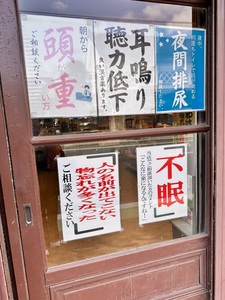 夜間排尿
耳鳴り
聴力低下
良い漢方薬あります
朝から
頭が重い方
ご相談ください
「不眠」
「人の名前が出てこない
物忘れが多くなった」
ご相談ください